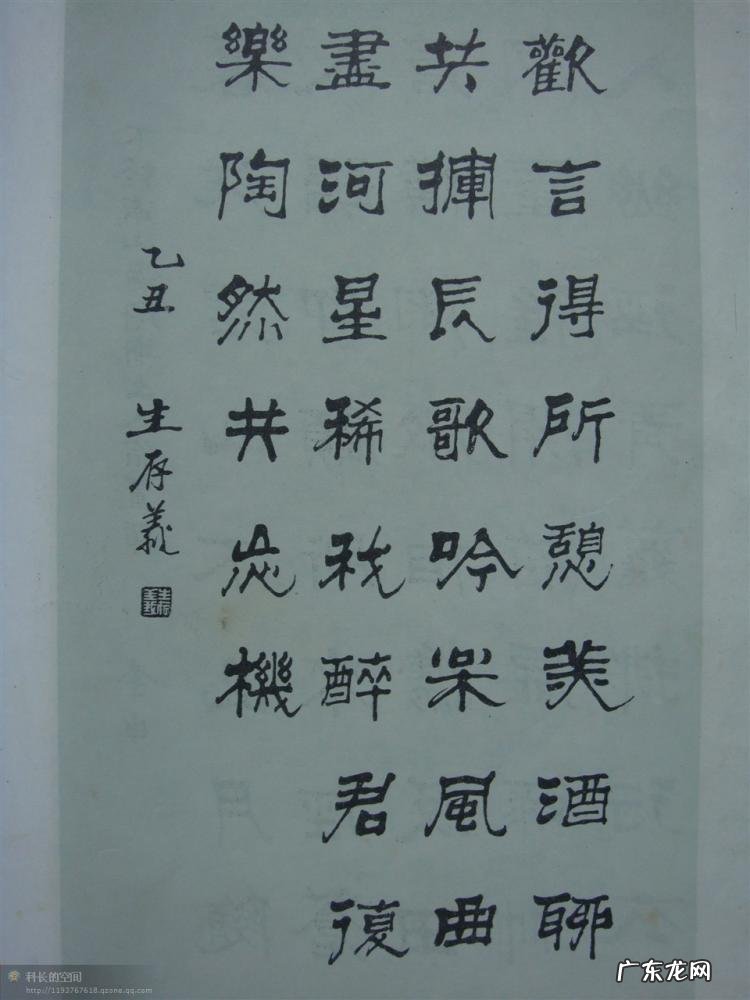 歡言得所憩美酒聊
共揮長歌吟枀風曲
盡河星稀我醉君復
樂陶然共忘機
乙丑 生存義
科长的空间
http://1193767618.qzone.qq.com
广东龙网